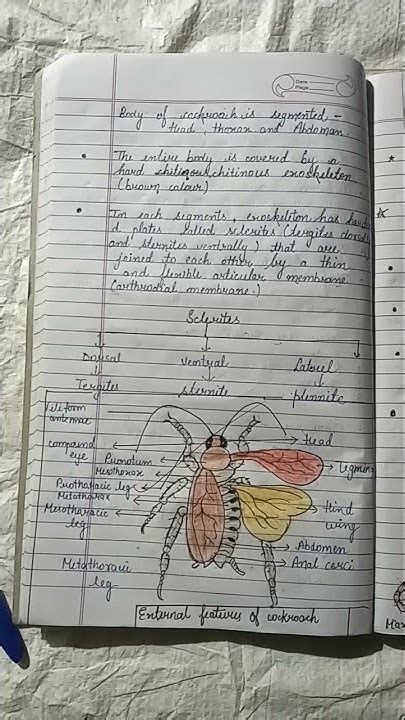 Date
Page
Body of cockroach is segmented -
Head, thorax and Abdoman.
The entire body is covered by a
hard chitinous chitinous exoskeleton
(brown colour)
In each segments, exoskeleton has harde
d plates called sclerites (tergites dorsally
and sternites ventrally) that are
joined to each other by a thin
and flexible articular membrane
(arthrodial membrane.)
Sclerites
Dorsal ventral Lateral
Tergites sternite plennite
filiform
antennae
Head
compound
eye
Pronotum
Mesothorax
Tegmina
Prothoracic leg
Metathorax
Mesothoracic
leg
Hind
wing
Abdomen
Anal cerci
Metathoracic
leg
External features of cockroach
Max